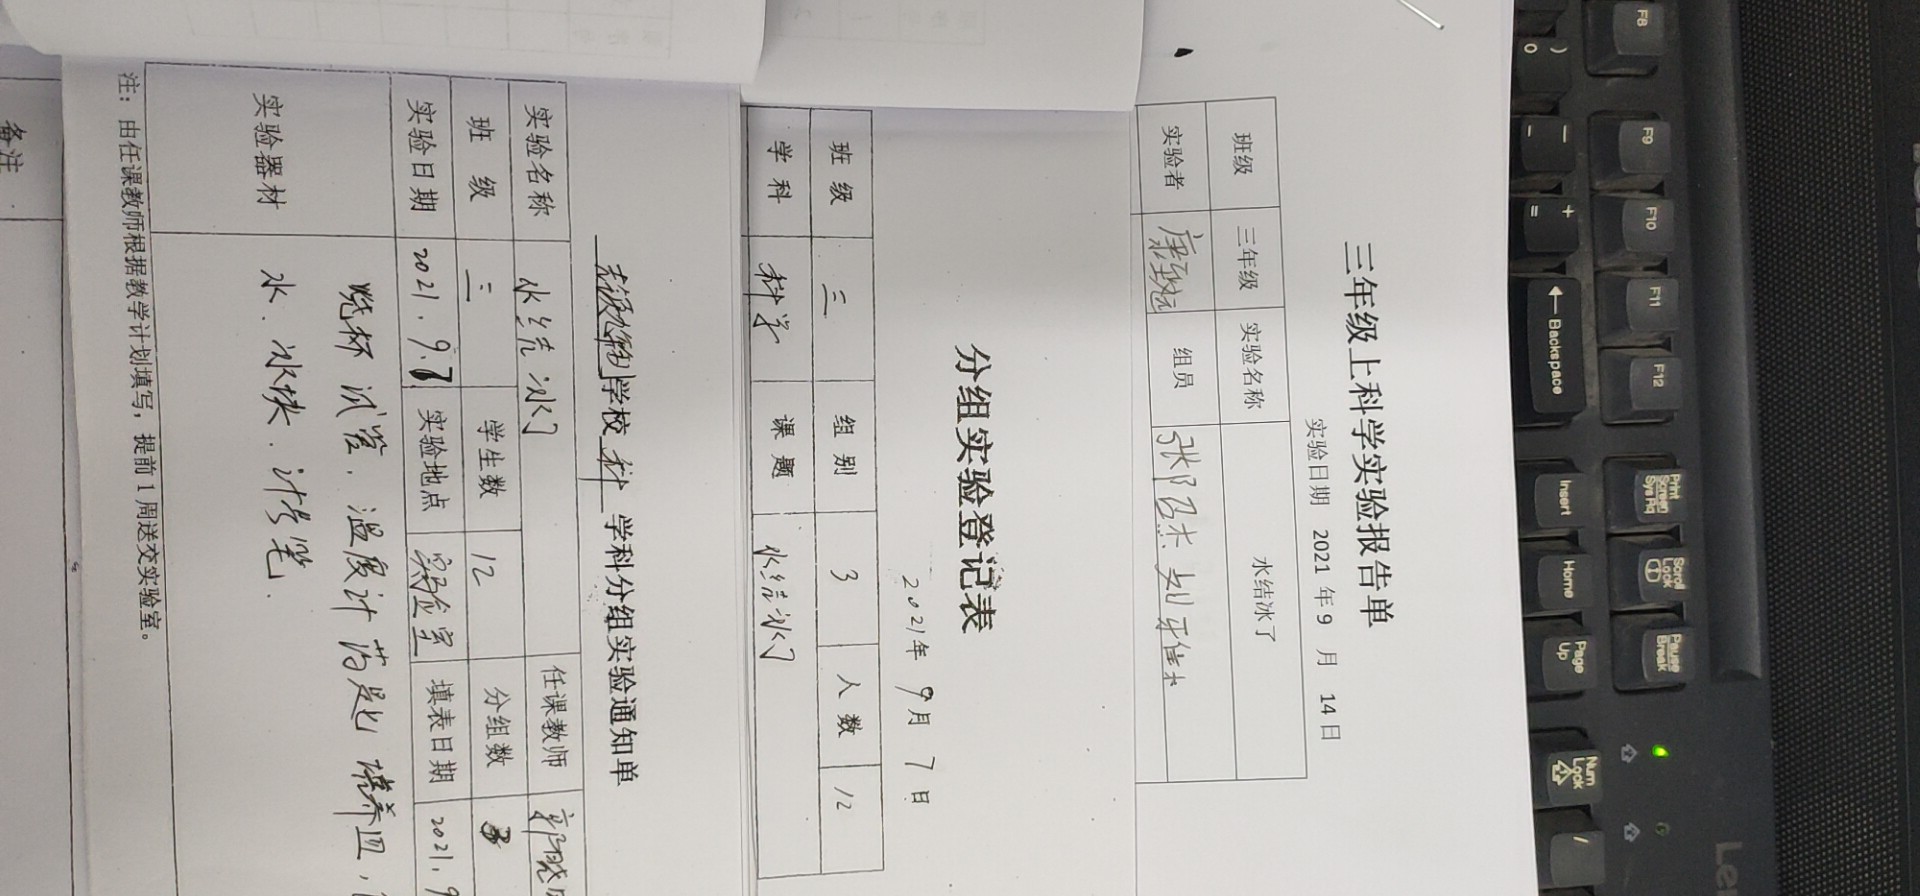 三年级上科学实验报告单
实验日期 2021 年 9 月 14日
班级 三年级 实验名称 水结冰了
实验者 组员
分组实验登记表
2021年 9月 7日
班级 三 组别 3 人数 12
学科 科学 课题 水结冰了
学校 科 学科分组实验通知单
实验名称 水结冰了 任课教师
班级 三 学生数 12 分组数 3
实验日期 2021.9.7 实验地点 实验室 填表日期 2021.9
实验器材 烧杯 试管. 温度计 药匙 培养皿.
水. 冰块. 记号笔.
注：由任课教师根据教学计划填写，提前1周送交实验室。
备注
F8
F9
F10
F11
F12
Print Screen SysRq
Scroll Lock
Pause Break
) 0
_ -
+ =
Backspace
Insert
Home
Page Up
Num Lock
/
Le